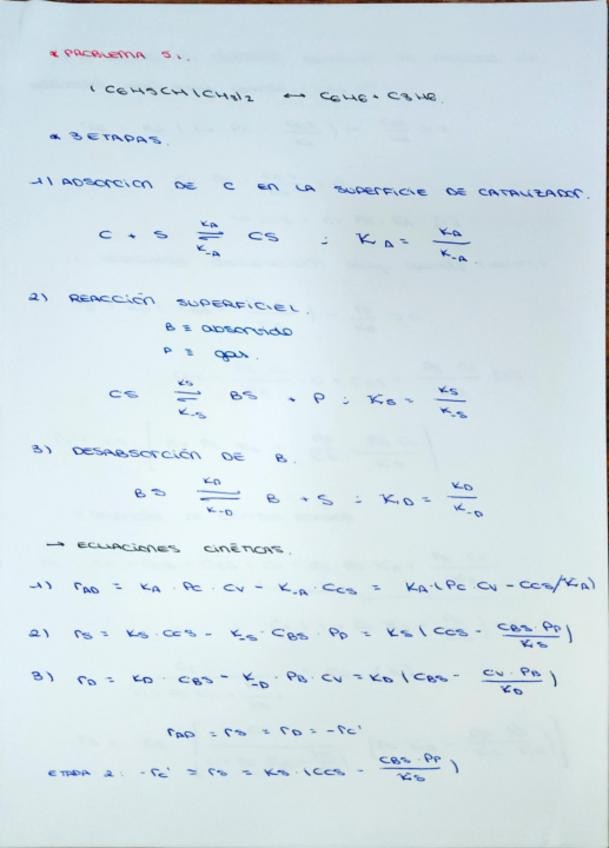 * PROBLEMA 5:.
( C6H5CH(CH3)2 ↔ C6H6 + C3H6.
* 3 ETAPAS.
1) ADSORCIÓN DE C EN LA SUPERFICIE DE CATALIZADOR.
C + S ⇌ CS : KA = kA / k-A
kA
k-A
2) REACCIÓN SUPERFICIEL.
B ≡ absorvido
P ≡ gas.
CS ⇌ BS + P : KS = kS / k-S
kS
k-S
3) DESABSORCIÓN DE B.
BS ⇌ B + S : KD = kD / k-D
kD
k-D
→ ECUACIONES CINÉTICAS.
1) rAD = kA · PC · CV - k-A · CCS = kA · (PC · CV - CCS/KA)
2) rS = kS · CCS - k-S · CBS · PP = kS (CCS - CBS · PP / KS)
3) rD = kD · CBS - k-D · PB · CV = kD (CBS - CV · PB / KD)
rAD = rS = rD = -rC'
ETAPA 2: -rC' = rS = kS · (CCS - CBS · PP / KS)